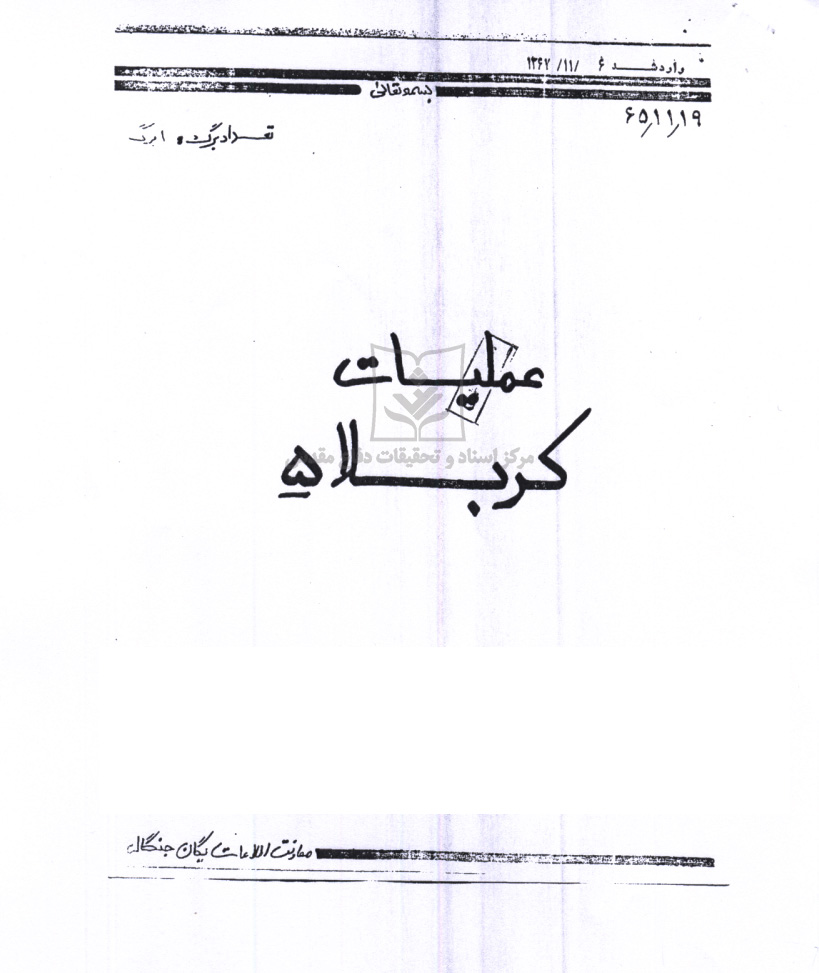 وارد شد ۶ /۱۱/ ۱۳۶۲
بسمه تعالی
۶۵/۱۱/۱۹
تعداد برگ: ۱ برگ
عملیات
کربلا ۵
مرکز اسناد و تحقیقات دفاع مقدس
معاونت اطلاعات یگان جنگال